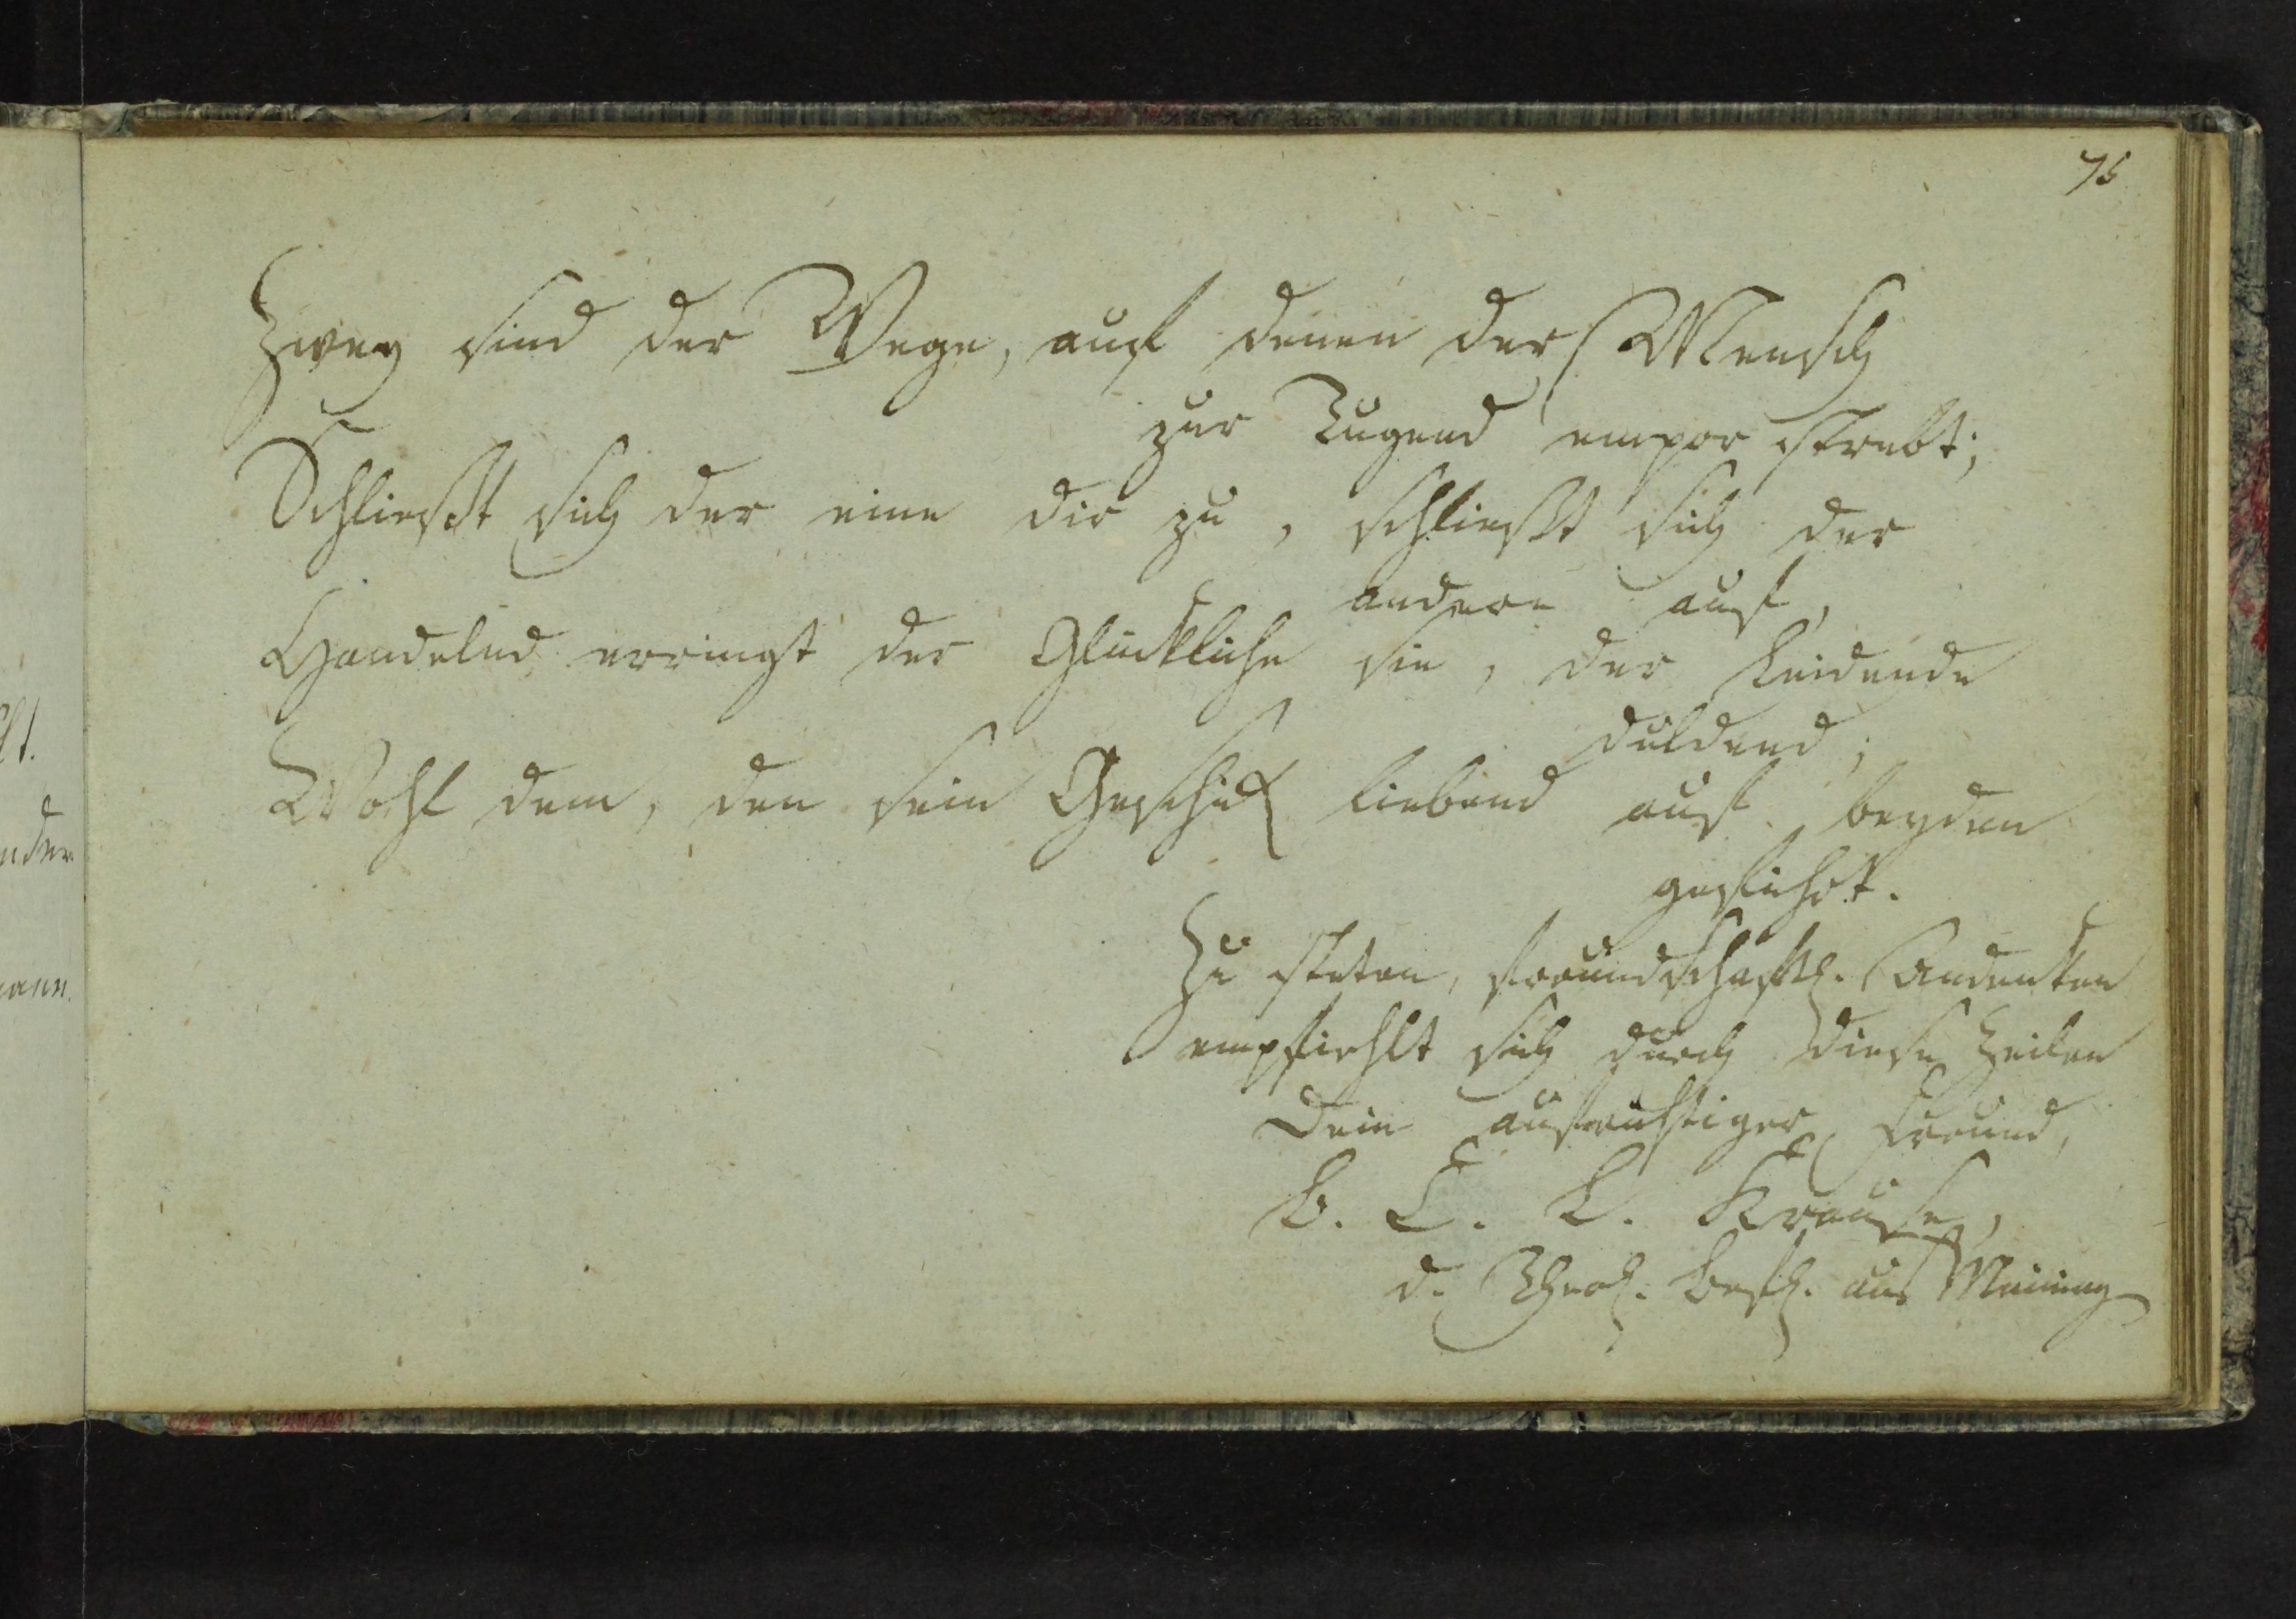 75
Zwey sind der Wege, auf denen der Mensch
zur Tugend empor strebt;
Schließt sich der eine dir zu, schließt sich der
andere auf,
Handelnd erringt der Glückliche sie, der Leidende
duldend;
Wohl dem, den sein Geschick liebend auf beyden
geführt.
Zu steten, freundschaftl. Andenken
empfiehlt sich durch diese Zeilen
Dein aufrichtiger Freund,
L. Krause,
d. Theol. Befl. aus Meining